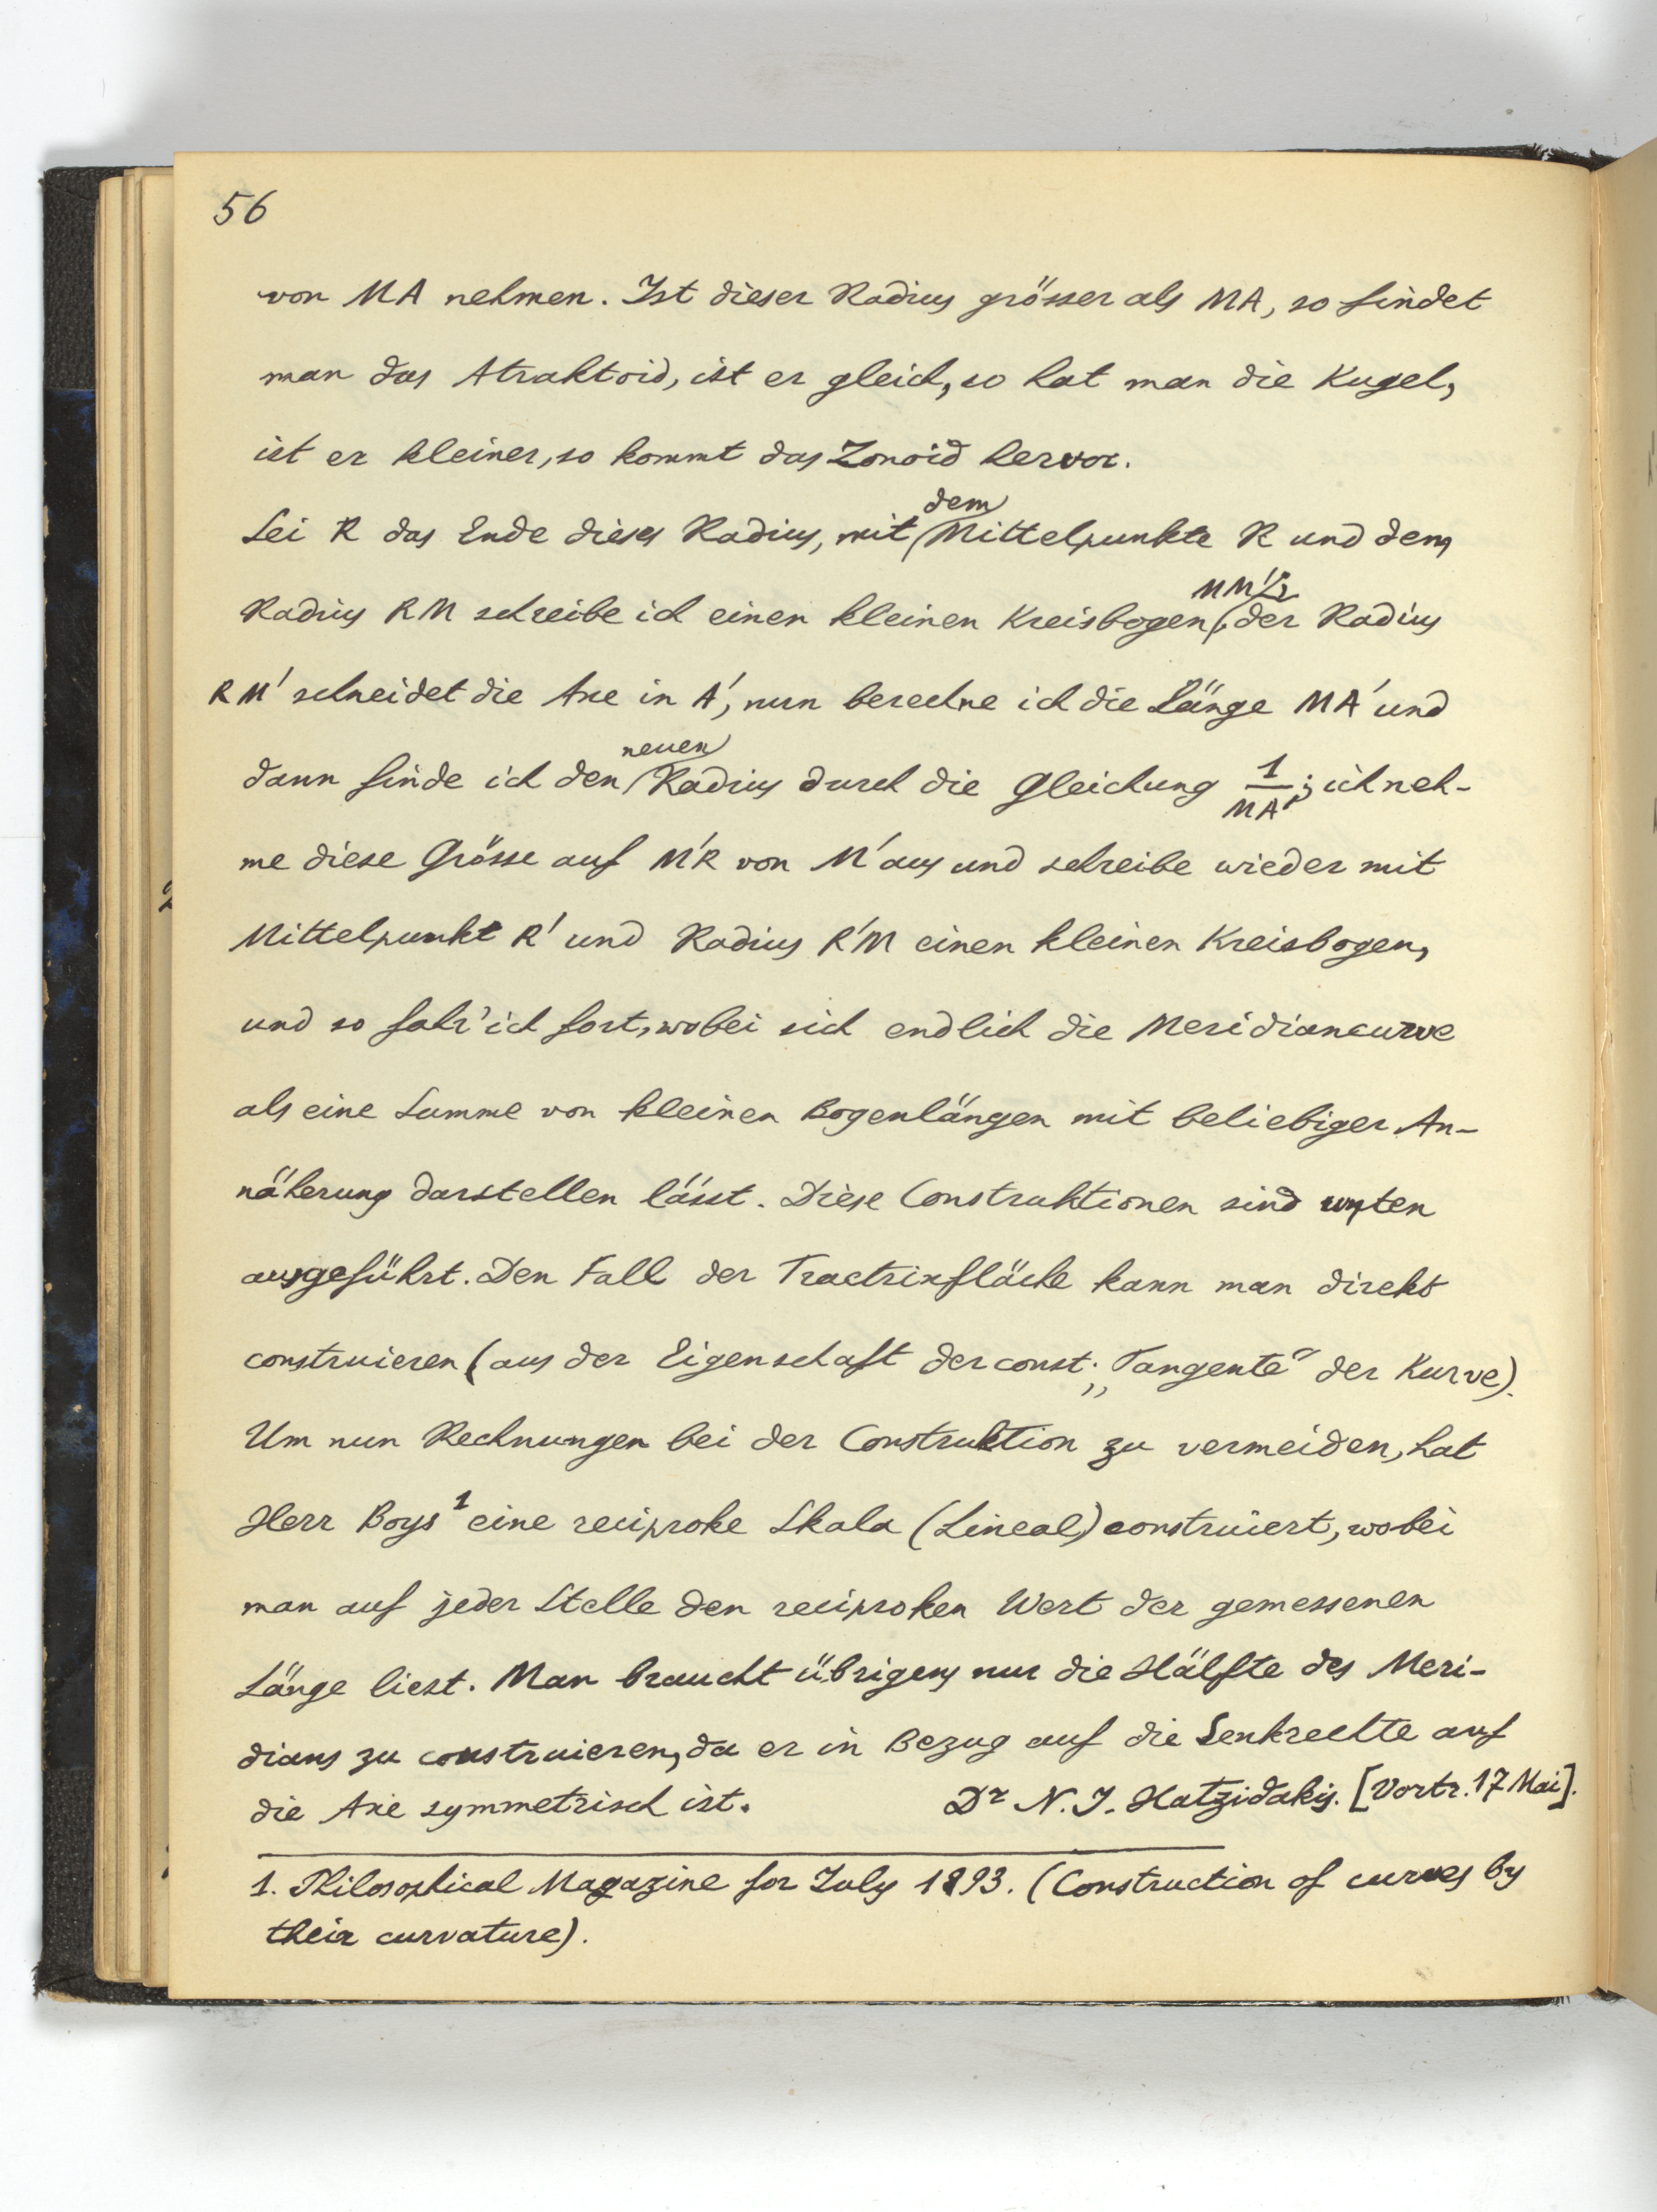 56
von MA nehmen. Ist dieser Radius grösser als MA, so findet
man das Atraktoid, ist er gleich, so hat man die Kugel,
ist er kleiner, so kommt das Zonoid hervor.
dem
Sei R das Ende dieses Radius, mit Mittelpunkte R und dem
MM';
Radius RM schreibe ich einen kleinen Kreisbogen, der Radius
RM' schneidet die Axe in A', nun berechne ich die Länge MA' und
neuen
dann finde ich den Radius durch die Gleichung 1/MA'; ich neh-
me diese Grösse auf M'R von M' aus und schreibe wieder mit
Mittelpunkt R' und Radius R'M einen kleinen Kreisbogen,
und so fahr' ich fort, wobei sich endlich die Meridiancurve
als eine Summe von kleinen Bogenlängen mit beliebiger An-
näherung darstellen lässt. Diese Construktionen sind unten
ausgeführt. Den Fall der Tractrixfläche kann man direkt
construieren (aus der Eigenschaft der const. „Tangente“ der Kurve).
Um nun Rechnungen bei der Construktion zu vermeiden, hat
Herr Boys¹ eine reciproke Skala (Lineal) construiert, wobei
man auf jeder Stelle den reciproken Wert der gemessenen
Länge liest. Man braucht übrigens nur die Hälfte des Meri-
dians zu construieren, da er in Bezug auf die Senkrechte auf
die Axe symmetrisch ist. Dr N. J. Hatzidakis. [Vortr. 17 Mai].
1. Philosophical Magazine for July 1893. (Construction of curves by
their curvature).